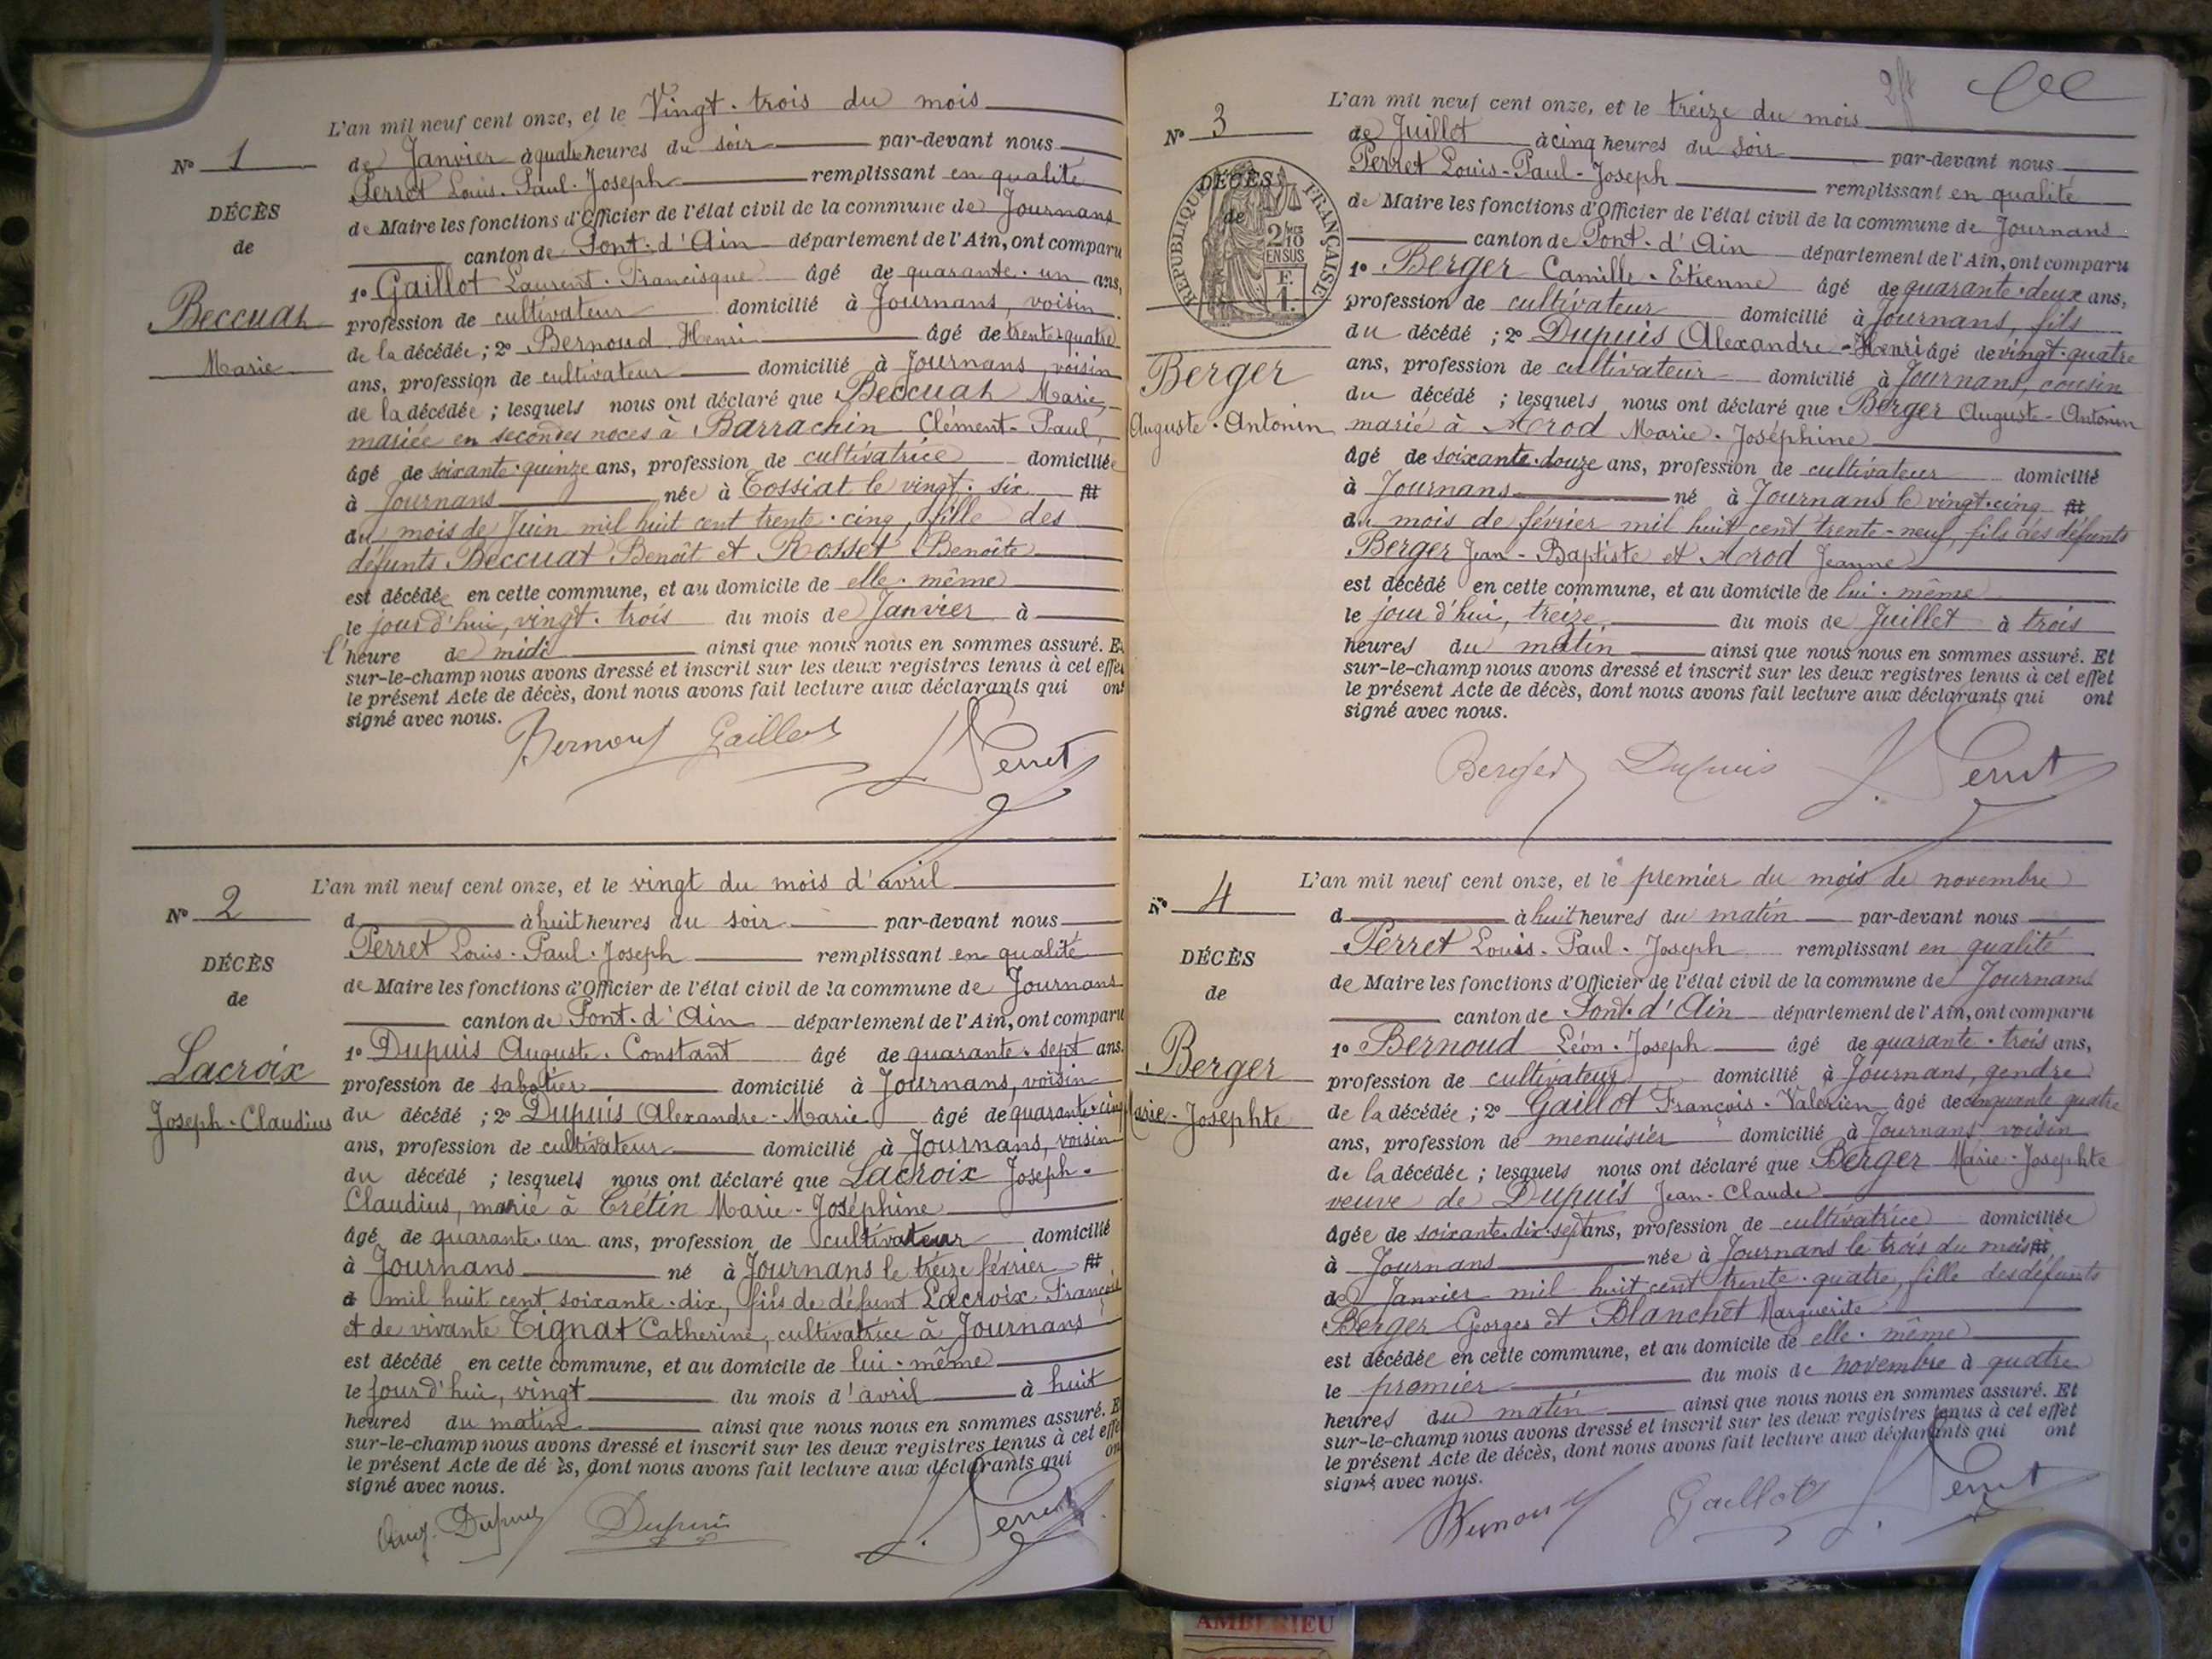 N° 1
DÉCÈS
de
Beccuat
Marie
L'an mil neuf cent onze, et le Vingt-trois du mois
de Janvier à quatre heures du soir par-devant nous
Perret Louis-Paul-Joseph remplissant en qualité
de Maire les fonctions d'Officier de l'état civil de la commune de Journans
canton de Pont-d'Ain département de l'Ain, ont comparu
1° Gaillot Laurent-Francisque âgé de quarante-un ans,
profession de cultivateur domicilié à Journans, voisin
de la décédée ; 2° Bernoud Henri âgé de trente-quatre
ans, profession de cultivateur domicilié à Journans, voisin
de la décédée ; lesquels nous ont déclaré que Beccuat Marie,
mariée en secondes noces à Barrachin Clément-Paul,
âgé de soixante-quinze ans, profession de cultivatrice domiciliée
à Journans née à Tossiat le vingt-six
du mois de Juin mil huit cent trente-cinq, fille des
défunts Beccuat Benoît et Rosset Benoîte
est décédée en cette commune, et au domicile de elle-même
le jour d'hui, vingt-trois du mois de Janvier à
l'heure de midi ainsi que nous nous en sommes assuré. Et
sur-le-champ nous avons dressé et inscrit sur les deux registres tenus à cet effet
le présent Acte de décès, dont nous avons fait lecture aux déclarants qui ont
signé avec nous.
Bernoud Gaillot L. Perret
N° 2
DÉCÈS
de
Lacroix
Joseph-Claudius
L'an mil neuf cent onze, et le vingt du mois d'avril
d à huit heures du soir par-devant nous
Perret Louis-Paul-Joseph remplissant en qualité
de Maire les fonctions d'Officier de l'état civil de la commune de Journans
canton de Pont-d'Ain département de l'Ain, ont comparu
1° Dupuis Auguste-Constant âgé de quarante-sept ans.
profession de sabotier domicilié à Journans, voisin
du décédé ; 2° Dupuis Alexandre-Marie âgé de quarante-cinq
ans, profession de cultivateur domicilié à Journans, voisin
du décédé ; lesquels nous ont déclaré que Lacroix Joseph-
Claudius, marié à Crétin Marie-Joséphine
âgé de quarante-un ans, profession de cultivateur domicilié
à Journans né à Journans le treize février
d mil huit cent soixante-dix, fils de défunt Lacroix François
et de vivante Tignat Catherine, cultivatrice à Journans
est décédé en cette commune, et au domicile de lui-même
le jour d'hui, vingt du mois d'avril à huit
heures du matin ainsi que nous nous en sommes assuré. E
sur-le-champ nous avons dressé et inscrit sur les deux registres tenus à cet effe
le présent Acte de dé ès, dont nous avons fait lecture aux déclarants qui on
signé avec nous.
Aug. Dupuis Dupuis L. Perret
N° 3
DÉCÈS
de
RÉPUBLIQUE FRANÇAISE
2/10
EN SUS
F.
1.
Berger
Auguste-Antonin
L'an mil neuf cent onze, et le treize du mois
de Juillet à cinq heures du soir par-devant nous
Perret Louis-Paul-Joseph remplissant en qualité
de Maire les fonctions d'Officier de l'état civil de la commune de Journans
canton de Pont-d'Ain département de l'Ain, ont comparu
1° Berger Camille-Etienne âgé de quarante-deux ans,
profession de cultivateur domicilié à Journans, fils
du décédé ; 2° Dupuis Alexandre-Henri âgé de vingt-quatre
ans, profession de cultivateur domicilié à Journans, cousin
du décédé ; lesquels nous ont déclaré que Berger Auguste-Antonin
marié à Morod Marie-Joséphine
âgé de soixante-douze ans, profession de cultivateur domicilié
à Journans né à Journans le vingt-cinq
du mois de février mil huit cent trente-neuf, fils des défunts
Berger Jean-Baptiste et Morod Jeanne
est décédé en cette commune, et au domicile de lui-même
le jour d'hui, treize, du mois de Juillet à trois
heures du matin ainsi que nous nous en sommes assuré. Et
sur-le-champ nous avons dressé et inscrit sur les deux registres tenus à cet effet
le présent Acte de décès, dont nous avons fait lecture aux déclarants qui ont
signé avec nous.
Berger Dupuis L. Perret
N° 4
DÉCÈS
de
Berger
Marie-Josephte
L'an mil neuf cent onze, et le premier du mois de novembre
d à huit heures du matin par-devant nous
Perret Louis-Paul-Joseph remplissant en qualité
de Maire les fonctions d'Officier de l'état civil de la commune de Journans
canton de Pont-d'Ain département de l'Ain, ont comparu
1° Bernoud Léon-Joseph âgé de quarante-trois ans,
profession de cultivateur domicilié à Journans, gendre
de la décédée ; 2° Gaillot François-Valérien âgé de cinquante quatre
ans, profession de menuisier domicilié à Journans voisin
de la décédée ; lesquels nous ont déclaré que Berger Marie-Josephte
veuve de Dupuis Jean-Claude
âgée de soixante-dix-sept ans, profession de cultivatrice domiciliée
à Journans née à Journans le trois du mois
de Janvier mil huit cent trente-quatre, fille des défunts
Berger Georges et Blanchet Marguerite
est décédée en cette commune, et au domicile de elle-même
le premier du mois de novembre à quatre
heures du matin ainsi que nous nous en sommes assuré. Et
sur-le-champ nous avons dressé et inscrit sur les deux registres tenus à cet effet
le présent Acte de décès, dont nous avons fait lecture aux déclarants qui ont
signé avec nous.
Bernoud Gaillot L. Perret
AMBERIEU